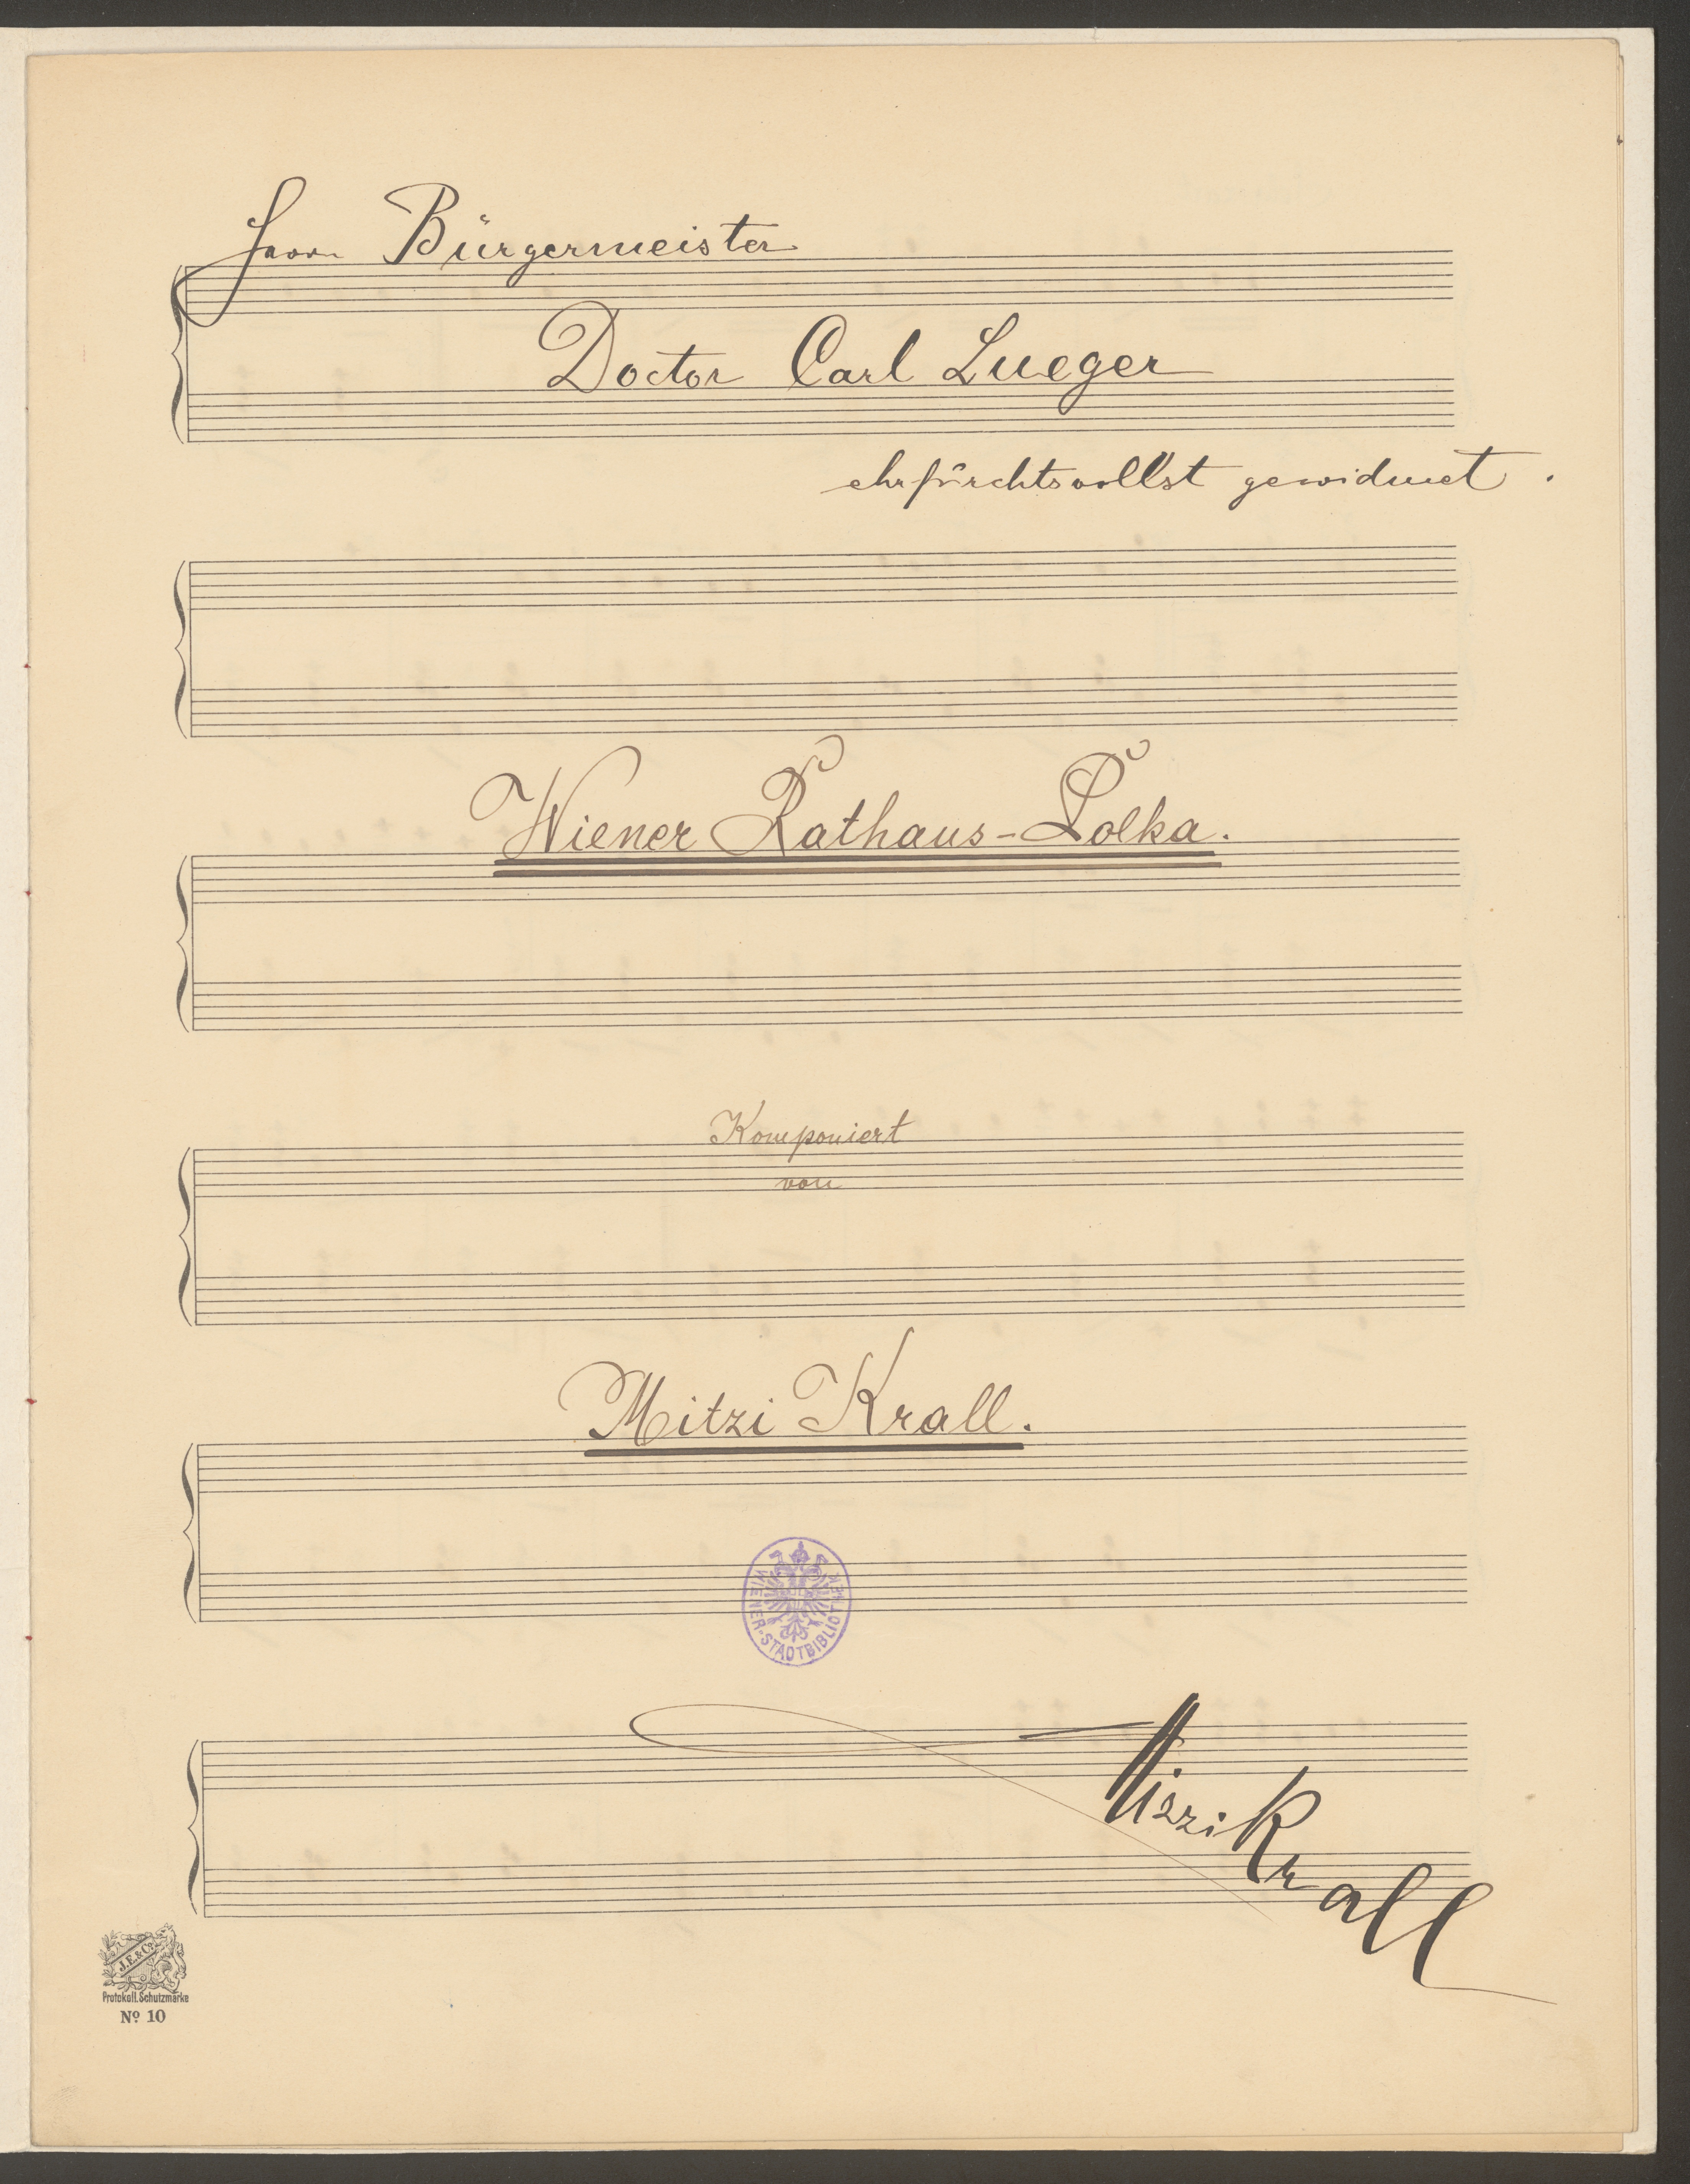 Herrn Bürgermeister
Doctor Carl Lueger
ehrfürchtsvollst gewidmet.
Wiener Rathaus-Polka.
Komponiert
von
Mitzi Krall.
WIENER-STADTBIBLIOTHEK
Mizzi Krall
J.E.&Co.
Protokoll. Schutzmarke
No 10